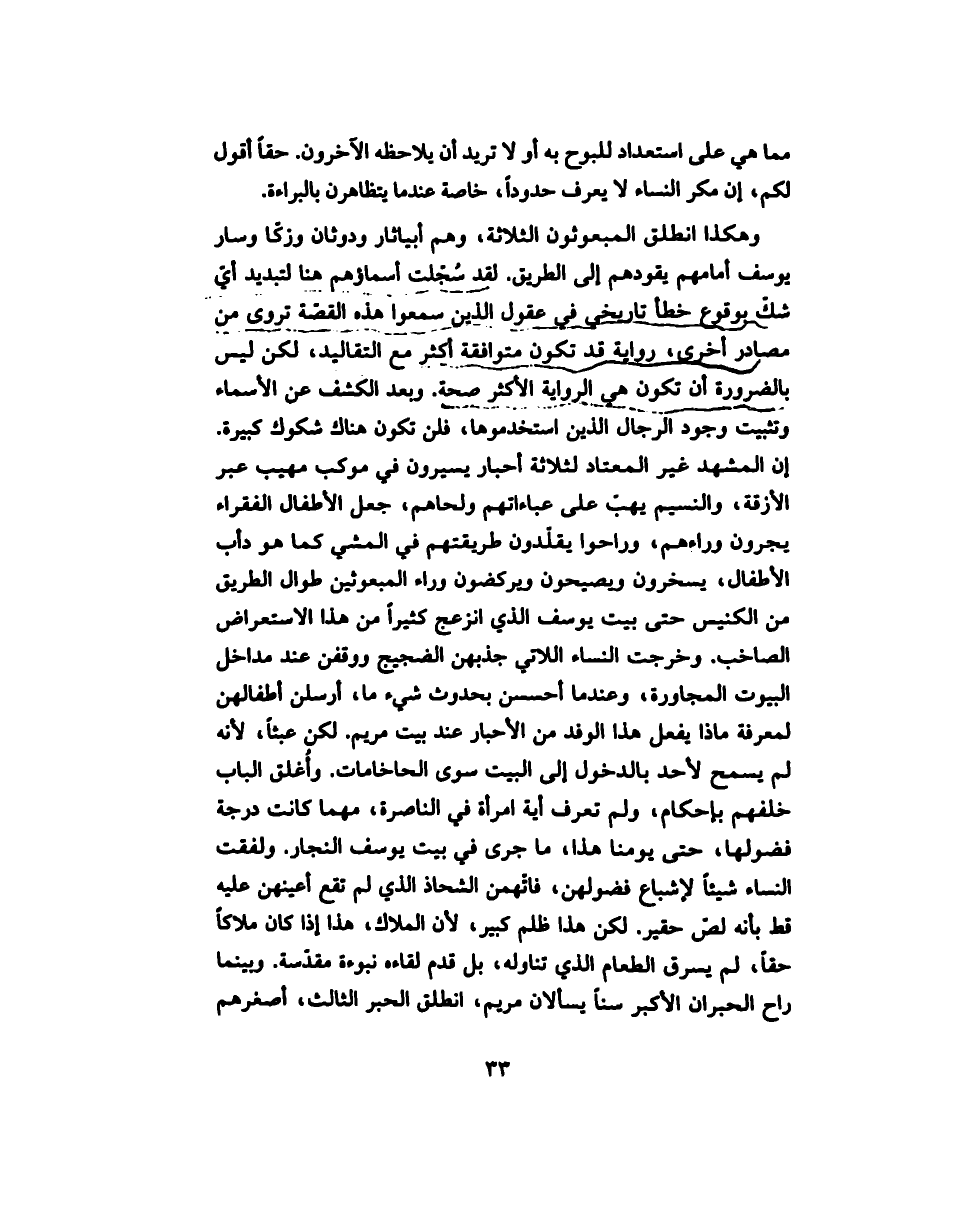 مما هي على استعداد للبوح به أو لا تريد أن يلاحظه الآخرون. حقاً أقول
لكم، إن مكر النساء لا يعرف حدوداً، خاصة عندما يتظاهرن بالبراءة.
وهكذا انطلق المبعوثون الثلاثة، وهم أبياثار ودوثان وزكّا وسار
يوسف أمامهم يقودهم إلى الطريق. لقد سُجّلت أسماؤهم هنا لتبديد أيّ
شكّ بوقوع خطأ تاريخي في عقول الذين سمعوا هذه القصّة تروى من
مصادر أخرى، رواية قد تكون متوافقة أكثر مع التقاليد، لكن ليس
بالضرورة أن تكون هي الرواية الأكثر صحة. وبعد الكشف عن الأسماء
وتثبيت وجود الرجال الذين استخدموها، فلن تكون هناك شكوك كبيرة.
إن المشهد غير المعتاد لثلاثة أحبار يسيرون في موكب مهيب عبر
الأزقة، والنسيم يهبّ على عباءاتهم ولحاهم، جعل الأطفال الفقراء
يجرون وراءهم، وراحوا يقلّدون طريقتهم في المشي كما هو دأب
الأطفال، يسخرون ويصيحون ويركضون وراء المبعوثين طوال الطريق
من الكنيس حتى بيت يوسف الذي انزعج كثيراً من هذا الاستعراض
الصاخب. وخرجت النساء اللاتي جذبهن الضجيج ووقفن عند مداخل
البيوت المجاورة، وعندما أحسسن بحدوث شيء ما، أرسلن أطفالهن
لمعرفة ماذا يفعل هذا الوفد من الأحبار عند بيت مريم. لكن عبثاً، لأنه
لم يسمح لأحد بالدخول إلى البيت سوى الحاخامات. وأُغلق الباب
خلفهم بإحكام، ولم تعرف أية امرأة في الناصرة، مهما كانت درجة
فضولها، حتى يومنا هذا، ما جرى في بيت يوسف النجار. ولفقت
النساء شيئاً لإشباع فضولهن، فاتّهمن الشحاذ الذي لم تقع أعينهن عليه
قط بأنه لصّ حقير. لكن هذا ظلم كبير، لأن الملاك، هذا إذا كان ملاكاً
حقاً، لم يسرق الطعام الذي تناوله، بل قدم لقاءه نبوءة مقدّسة. وبينما
راح الحبران الأكبر سناً يسألان مريم، انطلق الحبر الثالث، أصغرهم
٣٣